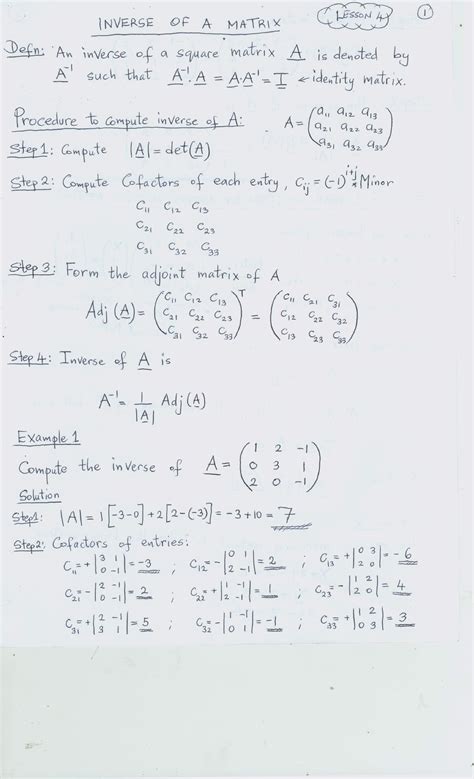 INVERSE OF A MATRIX
LESSON 4
1
Defn: An inverse of a square matrix A is denoted by
A⁻¹ such that A⁻¹.A = A.A⁻¹ = I ← identity matrix.
Procedure to compute inverse of A: A = (a₁₁ a₁₂ a₁₃
a₂₁ a₂₂ a₂₃
a₃₁ a₃₂ a₃₃)
Step 1: Compute |A| = det(A)
Step 2: Compute Cofactors of each entry, Cᵢⱼ = (-1)ⁱ⁺ʲ * Minor
C₁₁ C₁₂ C₁₃
C₂₁ C₂₂ C₂₃
C₃₁ C₃₂ C₃₃
Step 3: Form the adjoint matrix of A
Adj (A) = (C₁₁ C₁₂ C₁₃ / C₂₁ C₂₂ C₂₃ / C₃₁ C₃₂ C₃₃)ᵀ = (C₁₁ C₂₁ C₃₁ / C₁₂ C₂₂ C₃₂ / C₁₃ C₂₃ C₃₃)
Step 4: Inverse of A is
A⁻¹ = 1/|A| Adj(A)
Example 1
Compute the inverse of A = (1 2 -1 / 0 3 1 / 2 0 -1)
Solution
Step1: |A| = 1[-3-0] + 2[2-(-3)] = -3+10 = 7
Step2: Cofactors of entries:
C₁₁ = +|3 1 / 0 -1| = -3 ; C₁₂ = -|0 1 / 2 -1| = 2 ; C₁₃ = +|0 3 / 2 0| = -6
C₂₁ = -|2 -1 / 0 -1| = 2 ; C₂₂ = +|1 -1 / 2 -1| = 1 ; C₂₃ = -|1 2 / 2 0| = 4
C₃₁ = +|2 -1 / 3 1| = 5 ; C₃₂ = -|1 -1 / 0 1| = -1 ; C₃₃ = +|1 2 / 0 3| = 3